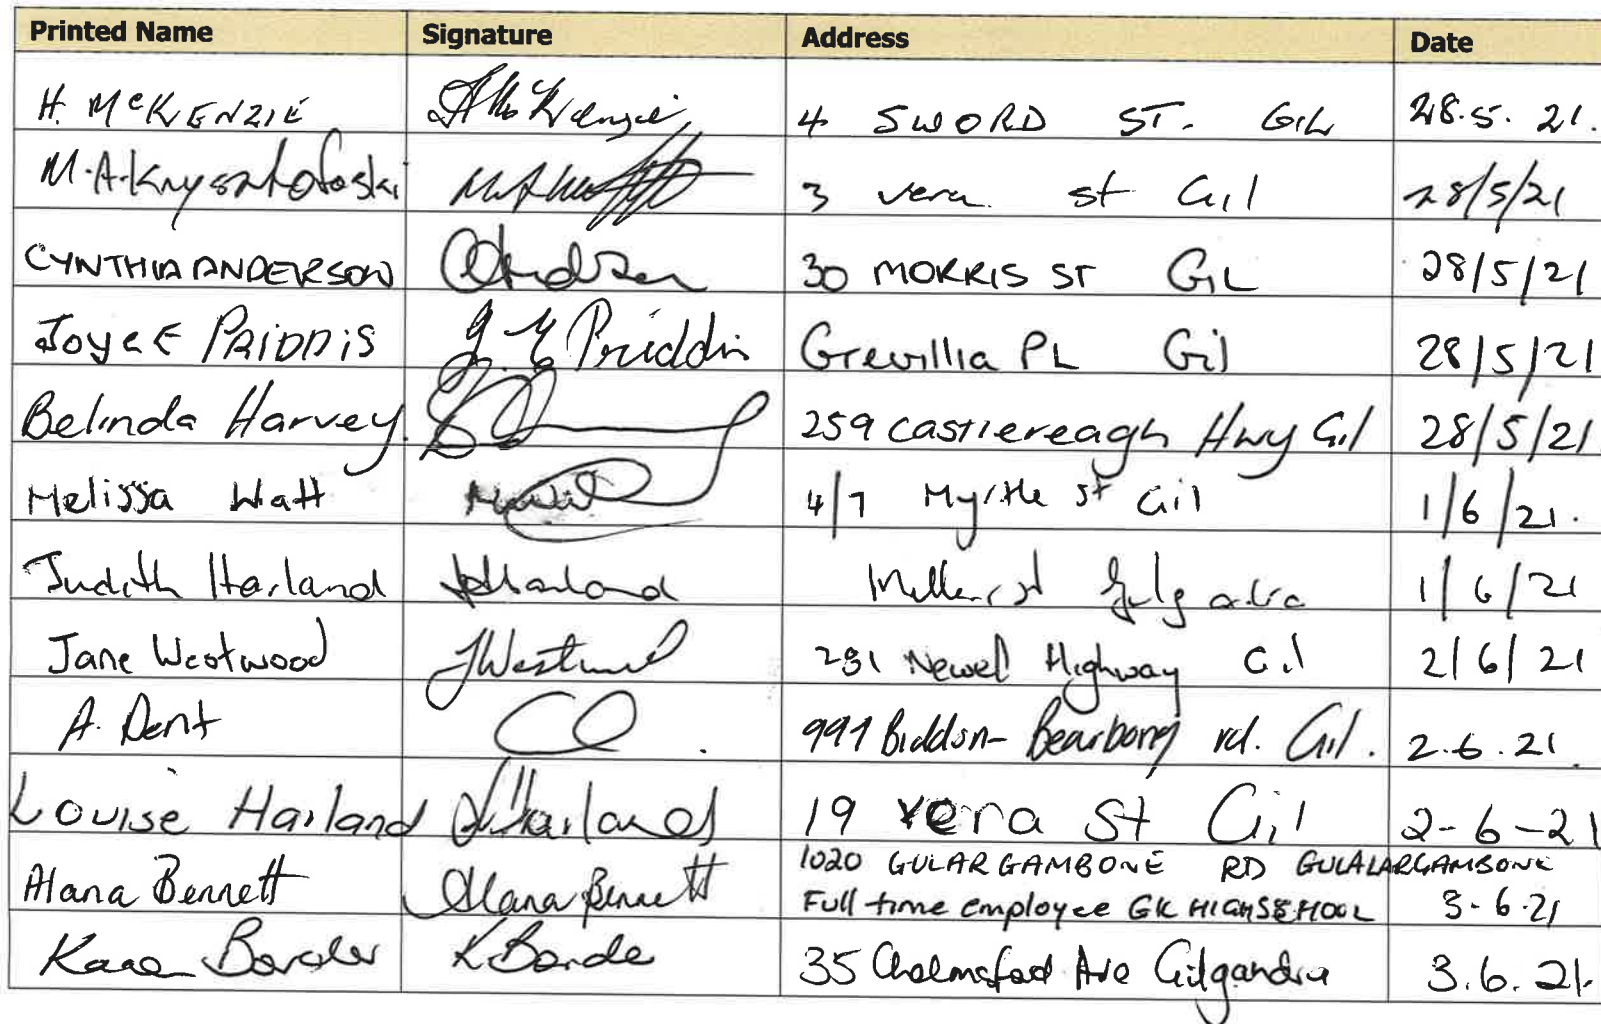 Printed Name Signature Address Date
H. McKENZIE H McKenzie 4 SWORD ST. GIL 28.5.21.
M.A.Krysztofoski 3 vera st Gil 28/5/21
CYNTHIA ANDERSON CAnderson 30 MORRIS ST GIL 28/5/21
JoycE PRIDDIS J. E Priddis Grevillia PL Gil 28/5/21
Belinda Harvey 259 castlereagh Hwy Gil 28/5/21
Melissa Watt 4/7 Myrtle st Gil 1/6/21.
Judith Harland JHarland Miller st Gulgandra 1/6/21
Jane Westwood JWestwood 281 Newell Highway Gil 2/6/21
A. Dent 991 Biddon-Bearbong rd. Gil. 2.6.21.
Louise Harland LHarland 19 vera St Gil 2-6-21
Alana Bennett Alana Bennett 1020 GULARGAMBONE RD GULALARGAMBONE
Full time employee GIL HIGHSCHOOL 3-6-21
Karen Border K Borde 35 Chelmsford Ave Gilgandra 3.6.21.